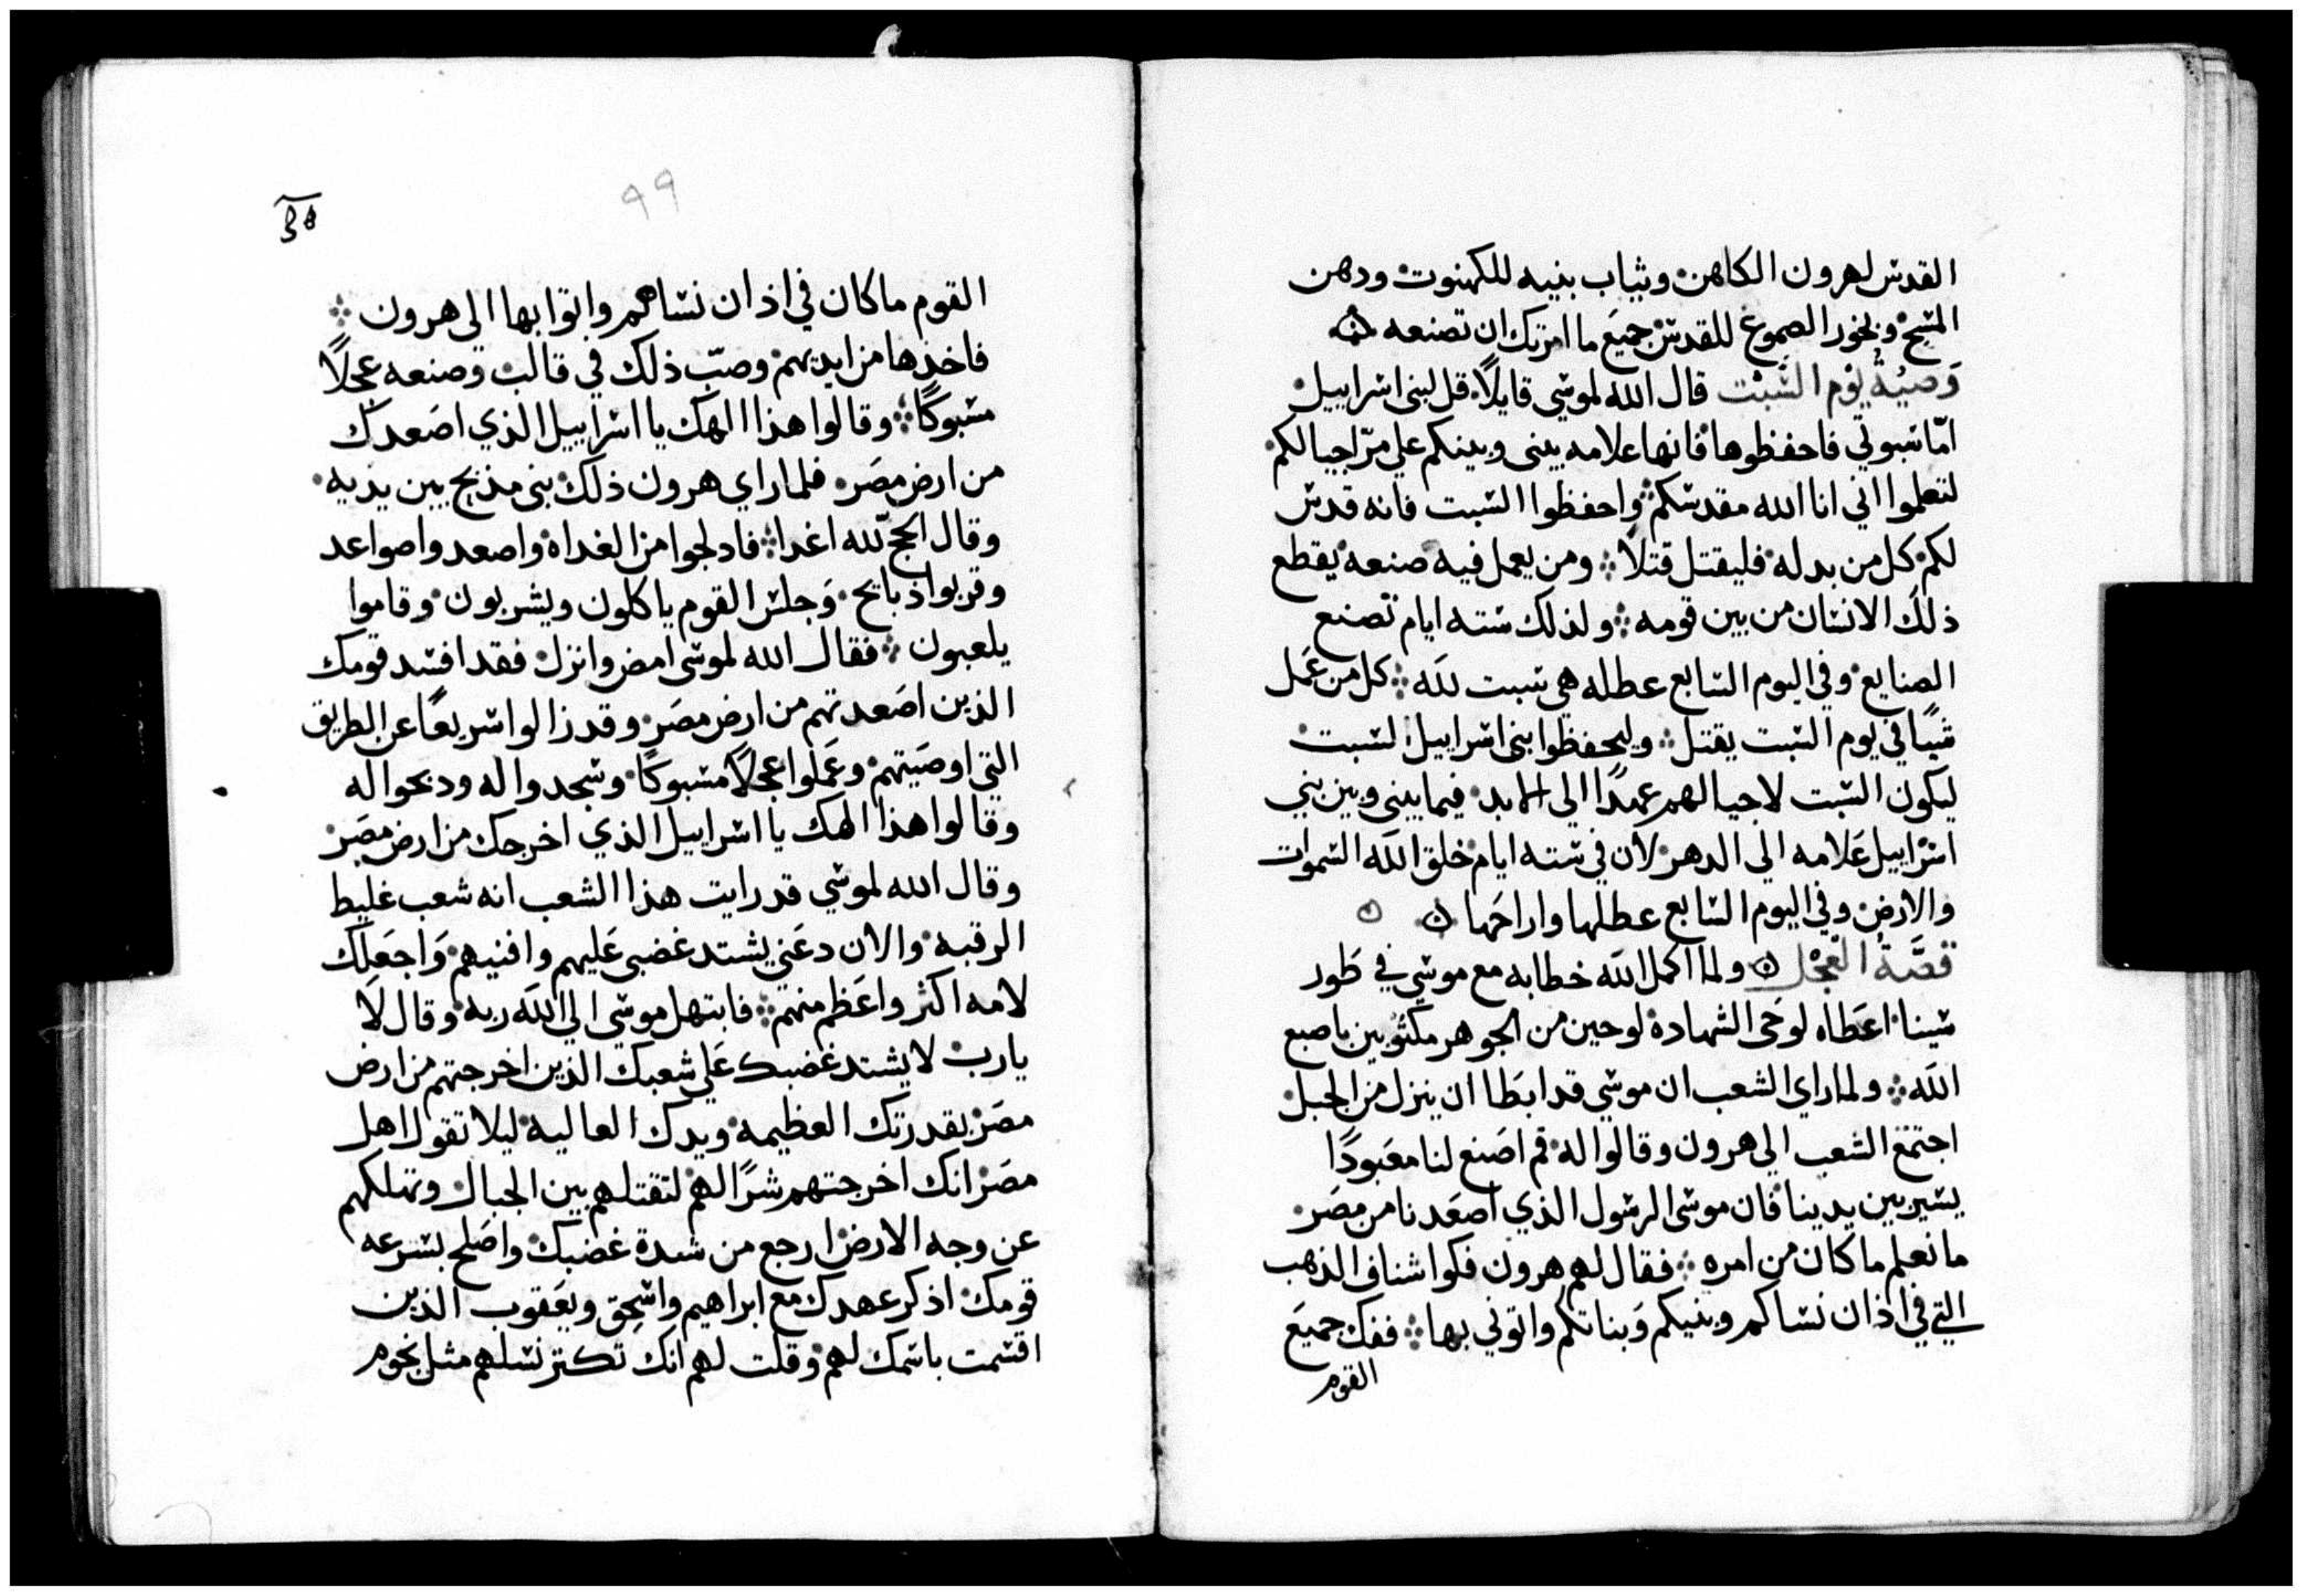 القدس لهرون الكاهن وثياب بنيه للكهنوت ودهن
المسح وبخور الصموغ للقدس جميع ما امرتك ان تصنعه
وَصيّةُ يوْم السَّبْت قال الله لموسي قايلاً قل لبني اسراييل
امّا سبوتي فاحفظوها فانها علامه بيني وبينكم علي مرّ اجيالكم
لتعلموا اني انا الله مقدسكم واحفظوا السبت فانه قدس
لكم كل من بدله فليقتل قتلاً ومن يعمل فيه صنعه يقطع
ذلك الانسان من بين قومه ولذلك سته ايام تصنع
الصنايع وفي اليوم السابع عطله هي سبت لله كل من عَمل
شيًا في يوم السبت يقتل وليحفظوا بني اسراييل السبت
ليكون السبت لاجيالهم عهدًا الي الابد فيما بيني وبين بني
اسراييل عَلامه الي الدهر لان في سته ايام خلق الله السموات
والارض وفي اليوم السابع عطلها واراحَها
قصَّةُ العجْل ولما اكمل الله خطابه مع موسي في طَور
سينا اعَطاه لوحَي الشهادة لوحين من الجوهر مكتُوبين باصبع
الله ولما راي الشعب ان موسي قد ابطَا ان ينزل من الجبل
اجتمع الشعب الي هرون وقالوا له قم اصَنع لنا معَبودًا
يسير بين يدينا فان موسي الرسول الذي اصعَدنا من مصَر
ما نعلم ما كان من امره فقال لهم هرون فكوا شناف الذهب
التي في اذان نساكم وبنيكم وَبناتكم واتوني بها ففك جميَع
القوم
٩٩
القوم ما كان في اذان نساهم واتوا بها الي هرون
فاخذها من ايديهم وصبّ ذلك في قالب وصنعه عِجلاً
مسبوكًا وقالوا هذا الهك يا اسراييل الذي اصَعدك
من ارض مصَر فلما راي هرون ذلك بني مذبح بين يديه
وقال الحج لله اغدا فادلجوا من الغداه واصعدوا صواعد
وقربوا ذبايح وَجلس القوم ياكلون ويشربون وقاموا
يلعبون فقال الله لموسي امض وانزل فقد افسد قومك
الذين اصَعدتهم من ارض مصَر وقد زالوا سريعًا عن الطريق
التي اوصَيتهم وعَملوا عجلاً مسبوكًا وسَجدوا له ودبحوا له
وقالوا هذا الهك يا اسراييل الذي اخرجك من ارض مصَر
وقال الله لموسي قد رايت هذا الشعب انه شعب غليط
الرقبه والان دعَني يشتد غضبي عَليهم وافنيهم وَاجعَلك
لامه اكثر واعَظم منهم فابتهل موسي الي الله ربه وقال لَا
يارب لا يشتد غضبك عَلي شعبك الذين اخرجتهم من ارض
مصَر بقدرتك العظيمه ويدك العاليه ليلا تقول اهل
مصَر انك اخرجتهم شرًا لهم لتقتلهم بين الجبال وتهلكهم
عن وجه الارض ارجع من شدة غضبك واصَلح بسرعه
قومك اذكر عهدك مع ابراهيم واسحق ويعَقوب الذين
اقسمت باسمك لهم وقلت لهم انك تكتر نسلهم مثل نجوم